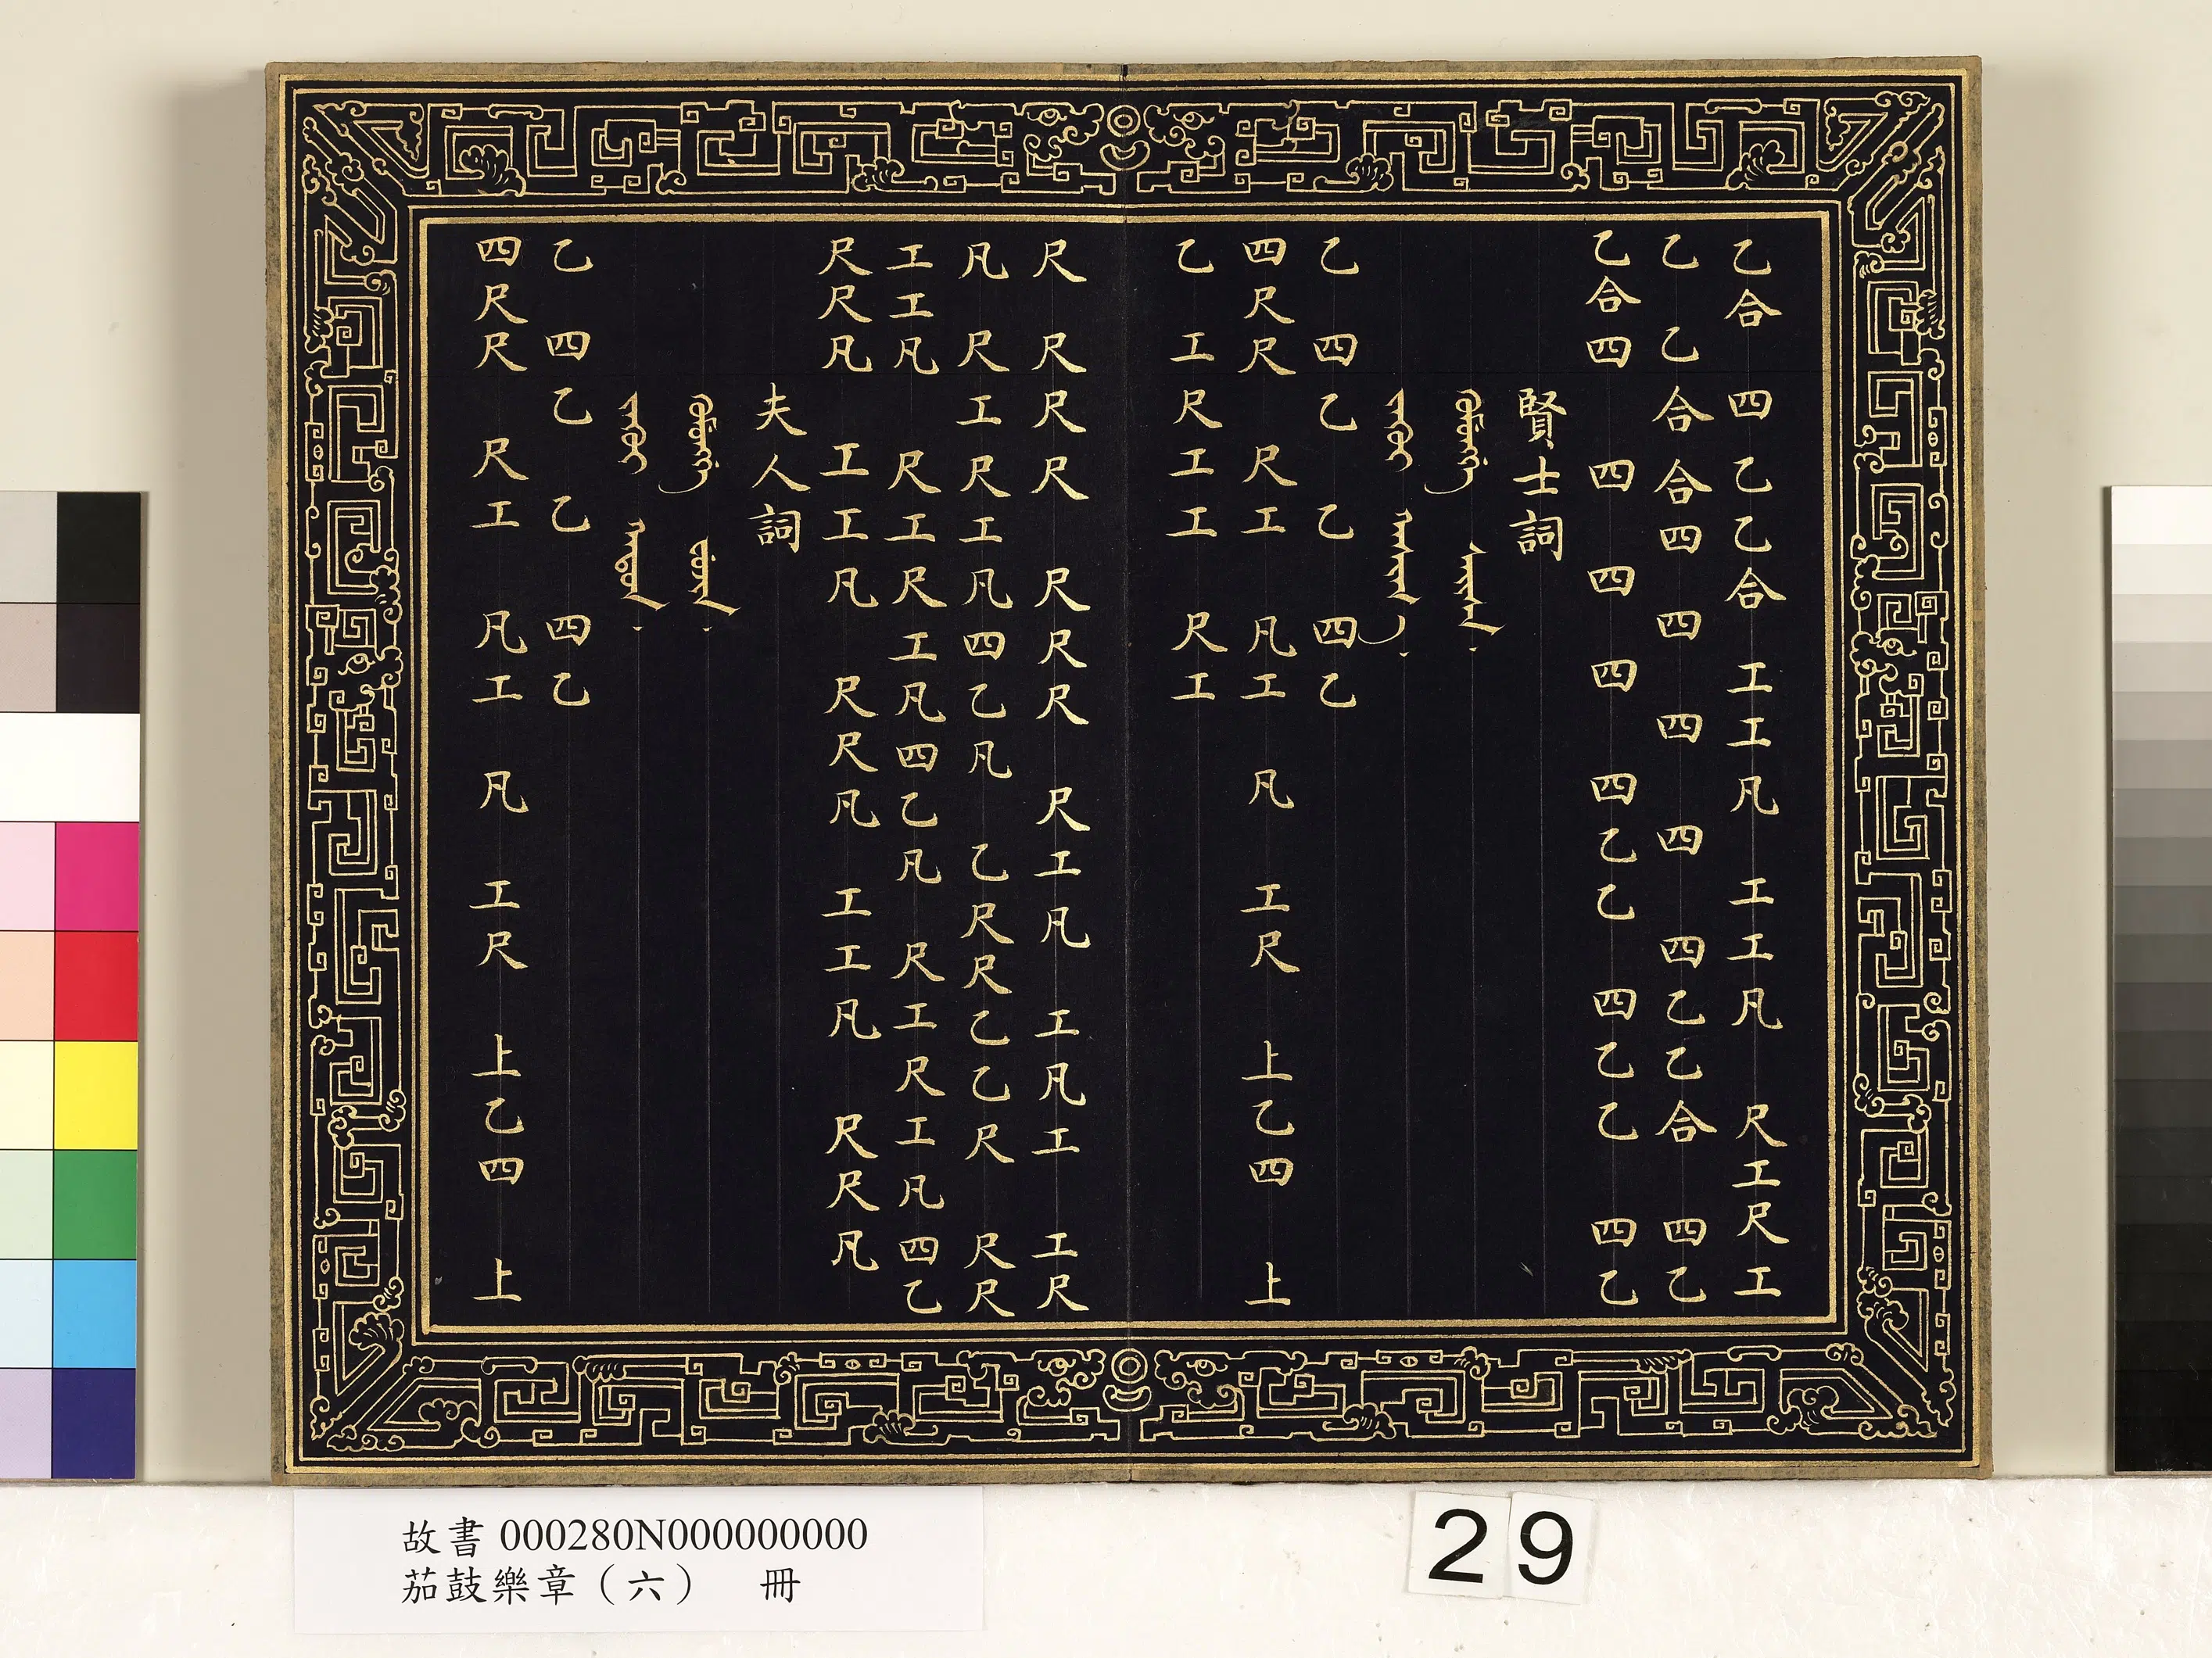 乙合 四乙乙合 工工凡 工工凡 尺工尺工
乙 乙合合四 四 四 四 四乙乙合 四乙
乙合四 四 四 四 四乙乙 四乙乙 四乙
賢士詞
乙 四乙 乙 四乙
四尺尺 尺工 凡工 凡 工尺 上乙四 上
乙 工尺工工 尺工
尺 尺尺尺 尺尺尺 尺工凡 工凡工 工尺
凡 尺工尺工凡四乙凡 乙尺尺乙乙尺 尺尺
工工凡 尺工尺工凡四乙凡 尺工尺工凡四乙
尺尺凡 工工凡 尺尺凡 工工凡 尺尺凡
夫人詞
乙 四乙 乙 四乙
四尺尺 尺工 凡工 凡 工尺 上乙四 上
故書 000280N000000000
茄鼓樂章（六） 冊
29